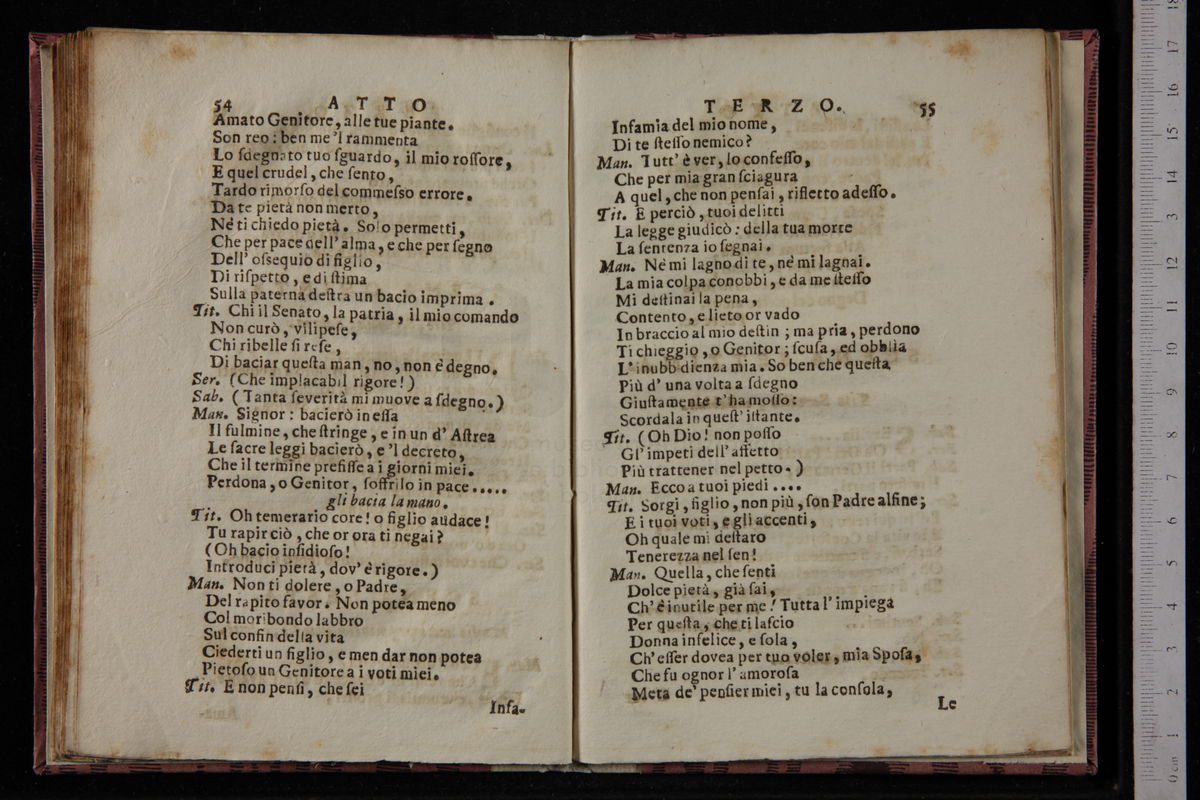 54 ATTO
Amato Genitore, alle tue piante.
Son reo: ben me 'l rammenta
Lo ſdegnato tuo ſguardo, il mio roſſore,
E quel crudel, che ſento,
Tardo rimorſo del commeſso errore.
Da te pietà non merto,
Nè ti chiedo pietà. Solo permetti,
Che per pace dell' alma, e che per ſegno
Dell' oſsequio di figlio,
Di riſpetto, e di ſtima
Sulla paterna deſtra un bacio imprima.
Tit. Chi il Senato, la patria, il mio comando
Non curò, vilipeſe,
Chi ribelle ſi reſe,
Di baciar queſta man, no, non è degno.
Ser. (Che implacabil rigore!)
Sab. (Tanta ſeverità mi muove a ſdegno.)
Man. Signor: bacierò in eſſa
Il fulmine, che ſtringe, e in un d' Aſtrea
Le ſacre leggi bacierò, e 'l decreto,
Che il termine prefiſſe a i giorni miei.
Perdona, o Genitor, ſoffrilo in pace.....
gli bacia la mano.
Tit. Oh temerario core! o figlio audace!
Tu rapir ciò, che or ora ti negai?
(Oh bacio inſidioſo!
Introduci pietà, dov' è rigore.)
Man. Non ti dolere, o Padre,
Del rapito favor. Non potea meno
Col moribondo labbro
Sul confin della vita
Ciederti un figlio, e men dar non potea
Pietoſo un Genitore a i voti miei.
Tit. E non penſi, che ſei
Infa-
TERZO. 55
Infamia del mio nome,
Di te ſteſſo nemico?
Man. Tutt' è ver, lo confeſſo,
Che per mia gran ſciagura
A quel, che non penſai, rifletto adeſſo.
Tit. E perciò, tuoi delitti
La legge giudicò: della tua morte
La ſentenza io ſegnai.
Man. Nè mi lagno di te, nè mi lagnai.
La mia colpa conobbi, e da me ſteſſo
Mi deſtinai la pena,
Contento, e lieto or vado
In braccio al mio deſtin; ma pria, perdono
Ti chieggio, o Genitor; ſcuſa, ed obblia
L' inubb dienza mia. So ben che queſta
Più d' una volta a ſdegno
Giuſtamente t' ha moſſo:
Scordala in queſt' iſtante.
Tit. (Oh Dio! non poſſo
Gl' impeti dell' affetto
Più trattener nel petto.)
Man. Ecco a tuoi piedi....
Tit. Sorgi, figlio, non più, ſon Padre alfine;
E i tuoi voti, e gli accenti,
Oh quale mi deſtaro
Tenerezza nel ſen!
Man. Quella, che ſenti
Dolce pietà, già ſai,
Ch' è inutile per me! Tutta l' impiega
Per queſta, che ti laſcio
Donna infelice, e ſola,
Ch' eſſer dovea per tuo voler, mia Spoſa,
Che fu ognor l' amoroſa
Meta de' penſier miei, tu la conſola,
Le